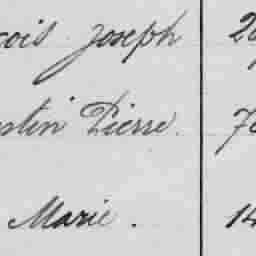 çois Joseph 2
stin Pierre. 7
Marie. 14